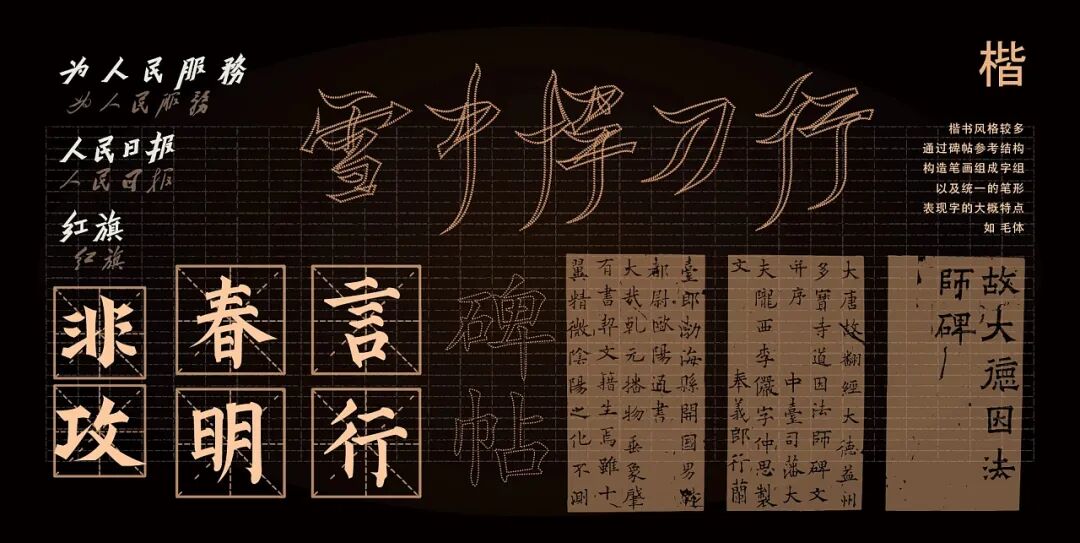 为人民服務
为人民服務
人民日报
人民日报
红旗
红旗
雪中悍刀行
楷
楷书风格较多
通过碑帖参考结构
构造笔画组成字组
以及统一的笔形
表现字的大概特点
如 毛体
非
春
言
攻
明
行
碑帖
臺郎渤海縣開國男
都尉歐陽通書
大哉乾元播物垂象肇
百書契文籍生焉雖十
翼精微陰陽之化不測
大唐故翻經大德益州
多寶寺道因法師碑文
并序 中臺司藩大
夫隴西李儼字仲思製
文 奉義郎行蘭
故大德因法
師碑